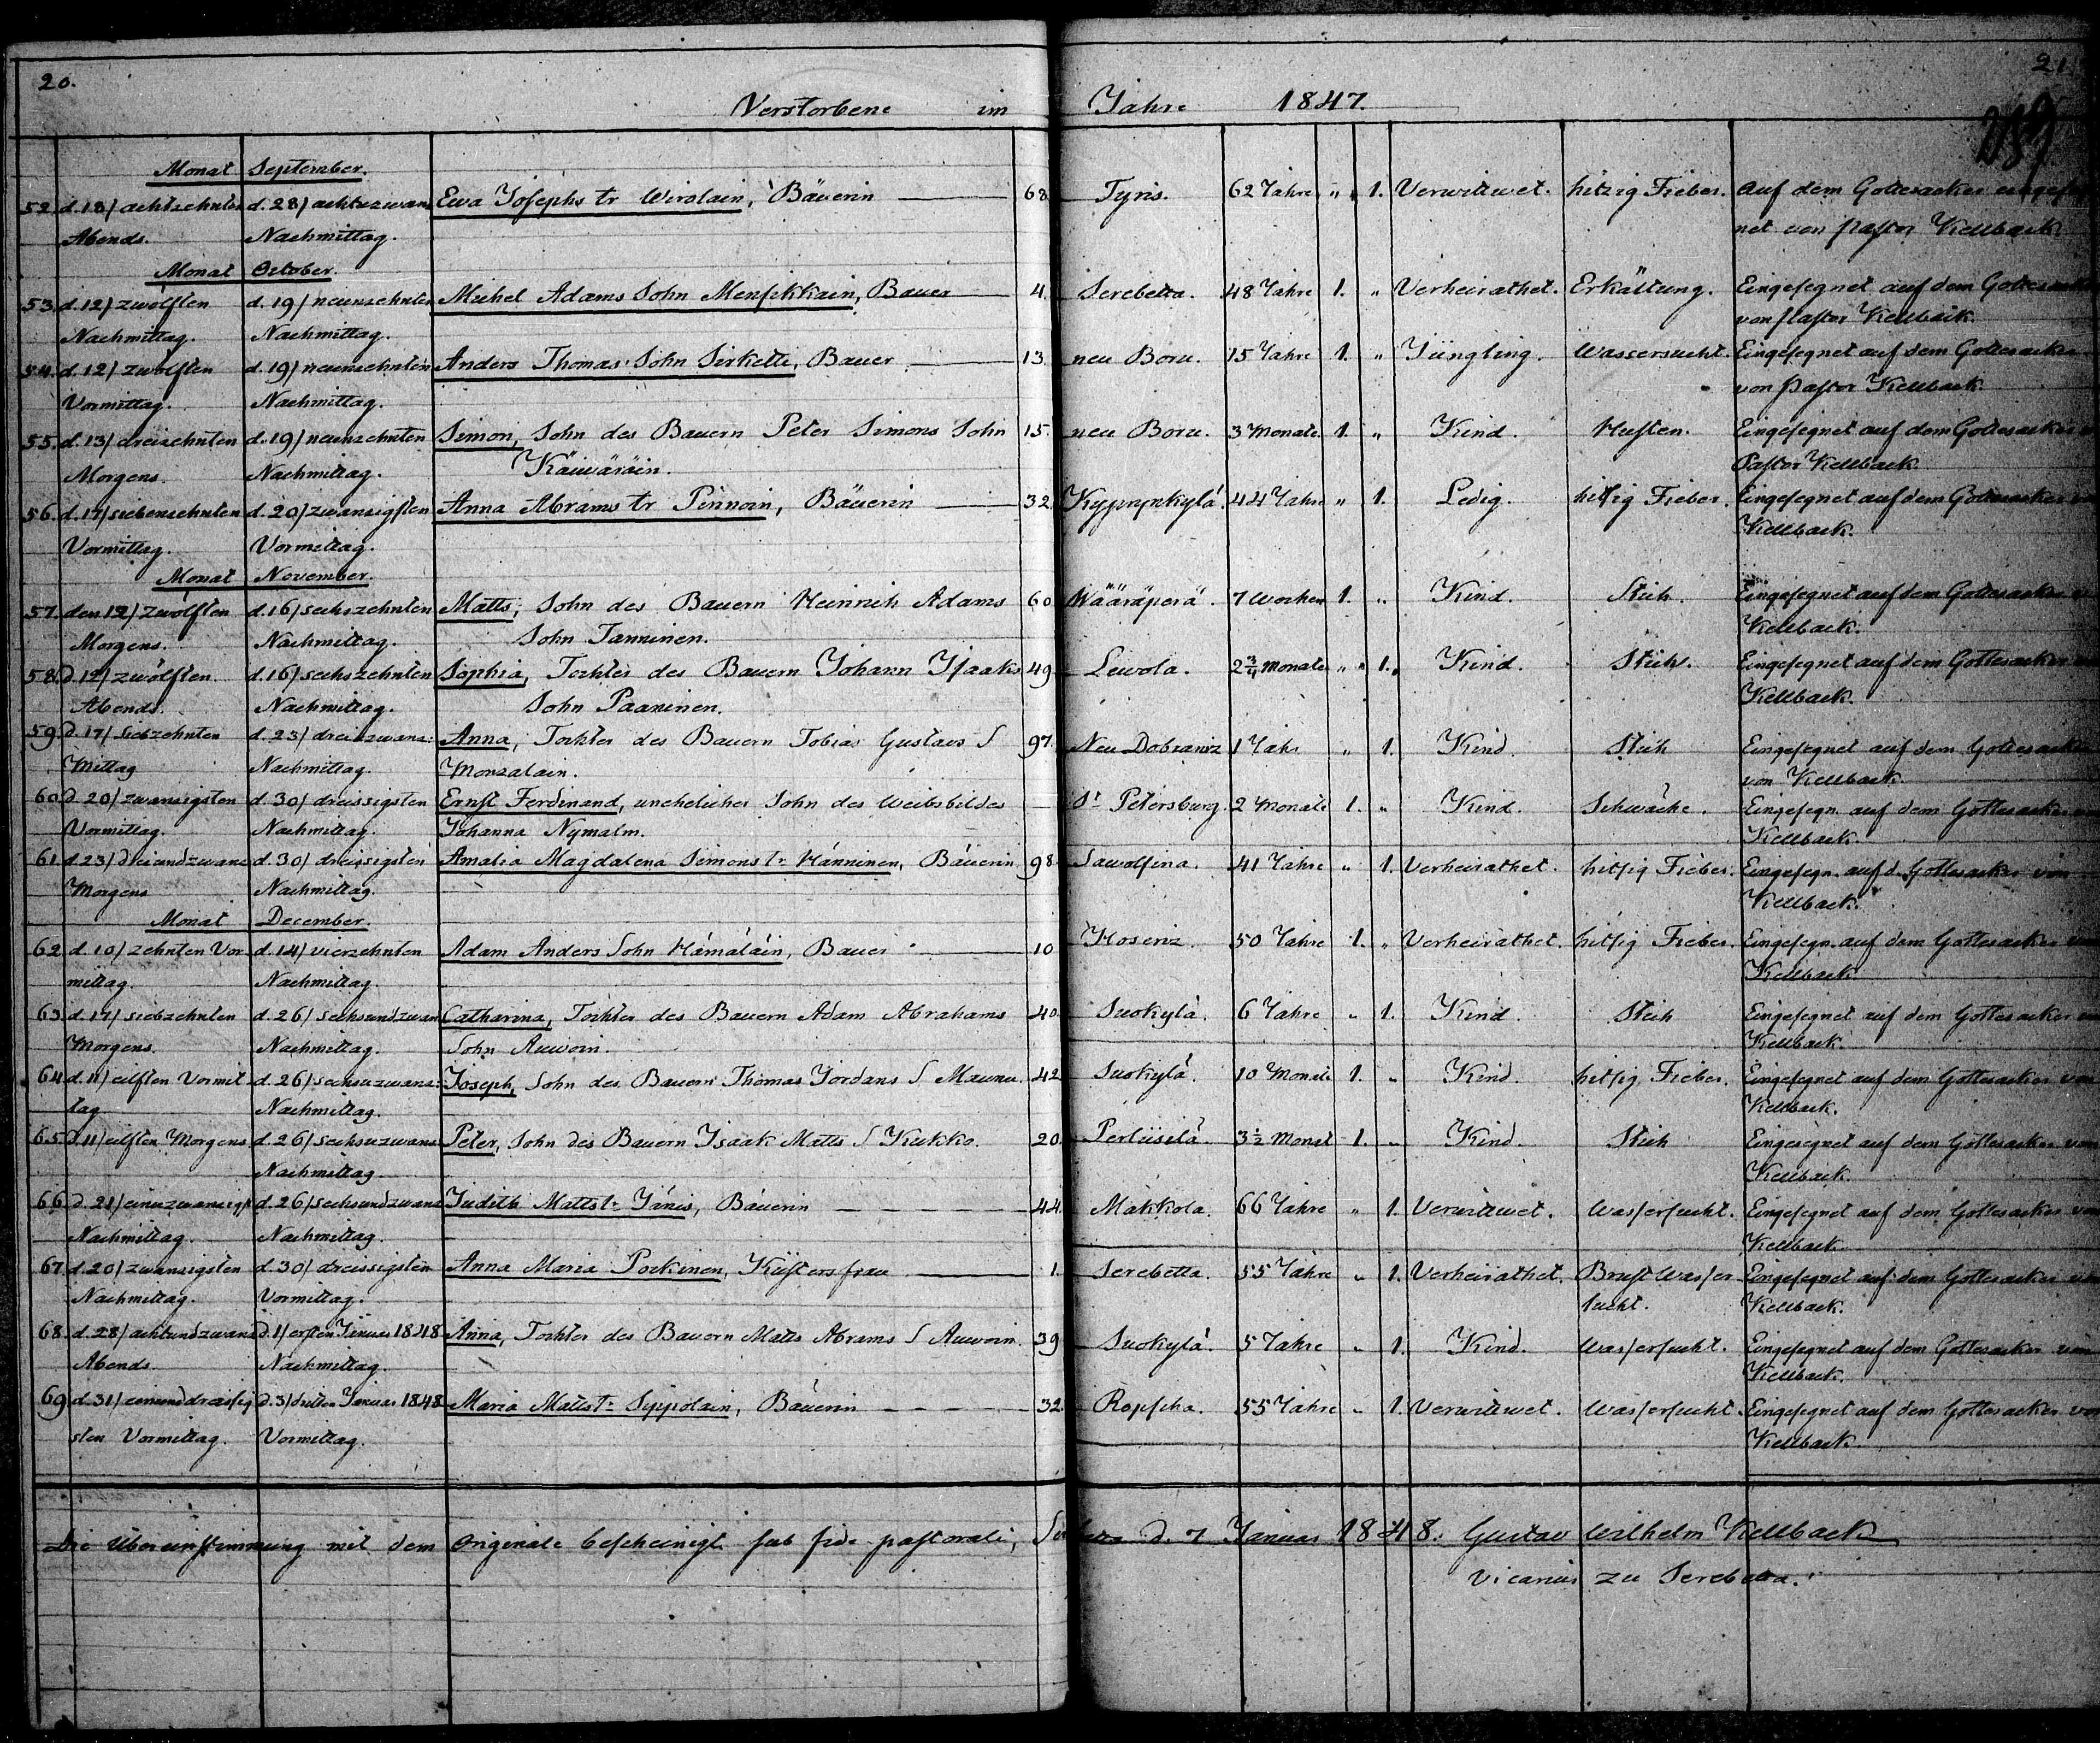 20.
21.
Verstorbene im Jahre 1847.
Monat September.
52. d. 18/ achtzehnten d. 28/ achtuzwan Ewa Josephs tr Wirolain, Bäuerin 68. Tyris. 62 Jahre " " 1. Verwittwet. hitzig Fieber. Auf dem Gottesacker eingeseg
Abends. Nachmittag. net von Pastor Kellback
Monat October.
53. d. 12/ zwölften d. 19/ neunzehnten Michel Adams Sohn Mensikkain, Bauer 4. Serebetta. 48 Jahre 1. " Verheirathet. Erkältung. Eingesegnet auf dem Gottesack
Nachmittag. Nachmittag. von Pastor Kellback.
54. d. 12/ zwölften d. 19/ neunzehnten Anders Thomas Sohn Sirkette, Bauer 13. neu Boru. 15 Jahre 1. " Jüngling. Wassersucht. Eingesegnet auf dem Gottesacker
Vormittag. Nachmittag. von Pastor Kellback
55. d. 13/ dreizehnten d. 19/ neunzehnten Simon, Sohn des Bauern Peter Simons Sohn 15. neu Boru. 3 Monate 1. " Kind. Husten. Eingesegnet auf dem Gottesacker
Morgens. Nachmittag. Käiwäräin. Pastor Kellback.
56. d. 17/ siebenzehnten d. 20/ zwanzigsten Anna Abrams tr Pinnoin, Bäuerin 32. Kyprynkylä. 44 Jahre " 1. Ledig. hitzig Fieber. Eingesegnet auf dem Gottesacker
Vormittag. Vormittag. Kellback.
Monat November.
57. den 12/ zwölften d. 16/ sechszehnten Matts, Sohn des Bauern Heinrich Adams 60 Wääräperä. 7 Wochen 1. " Kind. Stich. Eingesegnet auf dem Gottesacker
Morgens. Nachmittag. Sohn Tanninen. Kellback.
58. d. 12/ zwölften d. 16/ sechszehnten Sophia, Tochter des Bauern Johann Isaaks 49 Lewola. 2¾ Monate " " 1. Kind. Stich. Eingesegnet auf dem Gottesacker
Abends. Nachmittag. Sohn Paaninen. Kellback.
59. d. 17/ siebzehnten d. 23/ dreiuzwanz: Anna, Tochter des Bauern Tobias Gustavs S 97. Neu Dobraniz 1 Jahr " 1. Kind Stich Eingesegnet auf dem Gottesack
Mittag Nachmittag. Monzalain. von Kellback.
60. d. 20/ zwanzigsten d. 30/ dreissigsten Ernst Ferdinand, unehelicher Sohn des Weibsbildes St Petersburg. 2 Monate 1. " Kind. Schwäche. Eingesegn. auf dem Gottesacker
Vormittag. Nachmittag. Johanna Nymalm. Kellback.
61. d. 23/ dreiundzwanz d. 30/ dreissigsten Amalia Magdalena Simons tr Hänninen, Bäuerin. 98. Sawolsina. 41 Jahre " 1. Verheirathet. hitzig Fieber. Eingesegn. auf d. Gottesacker von
Morgens Nachmittag. Kellback.
Monat December.
62. d. 10/ zehnten Vor d. 14/ vierzehnten Adam Anders Sohn Hämäläin, Bauer 10 Koseriz. 50 Jahre 1. " Verheirathet. hitzig Fieber. Eingesegn. auf dem Gottesacker
mittag. Nachmittag. Kellback
63. d. 17/ siebzehnten d. 26/ sechsundzwan Catharina, Tochter des Bauern Adam Abrahams 40. Suokylä. 6 Jahre " 1. Kind. Stich Eingesegnet auf dem Gottesacker
Morgens. Nachmittag. Sohn Auwoin. Kellback.
64. d. 11/ eilften Vormit d. 26/ sechsuzwanz: Joseph, Sohn des Bauern Thomas Jordans S Maunu. 42. Suokylä. 10 Monate 1. " Kind. hitzig Fieber. Eingesegnet auf dem Gottesacker von
tag Nachmittag. Kellback.
65. d. 11/ eilften Morgens d. 26/ sechsuzwanz Peter, Sohn des Bauern Isaak Matts S Kukko. 20 Perlüsilä. 3½ Monat 1. " Kind. Stich Eingesegnet auf dem Gottesacker von
Nachmittag Kellback.
66. d. 21/ einuzwanzigst d. 26/ sechsundzwanz Judith Matts tr Jänis, Bäuerin 44. Mäkkola. 66 Jahre " 1. Verwittwet. Wassersucht. Eingesegnet auf dem Gottesacker von
Nachmittag. Nachmittag. Kellback.
67. d. 20/ zwanzigsten d. 30/ dreissigsten Anna Maria Pockinen, Küstersfrau 1. Serebetta. 55 Jahre " 1. Verheirathet. Brust Wasser Eingesegnet auf dem Gottesacker
Nachmittag. Vormittag. sucht. Kellback.
68. d. 28/ achtundzwanz d. 1/ ersten Januar 1848 Anna, Tochter des Bauern Matts Abrams S Auwoin. 39 Suokylä. 5 Jahre " 1. Kind. Wassersucht. Eingesegnet auf dem Gottesacker von
Abends. Nachmittag. Kellback.
69 d. 31/ einunddreissig d. 3/ dritten Januar 1848 Maria Matts tr Sippolain, Bäuerin 32. Ropscha. 55 Jahre " 1. Verwittwet. Wassersucht. Eingesegnet auf dem Gottesacker von
sten Vormittag. Vormittag. Kellback.
Die Übereinstimmung mit dem Originale bescheinigt sub fide pastorali, Serebetta d. 7 Januar 1848. Gustav Wilhelm Kellback
Vicarius zu Serebetta.